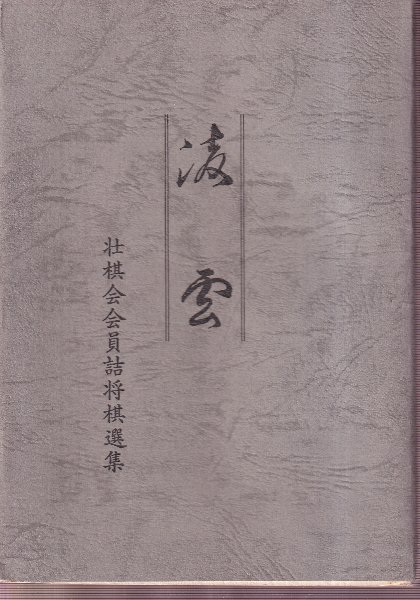 凌雲
壮棋会会員詰将棋選集